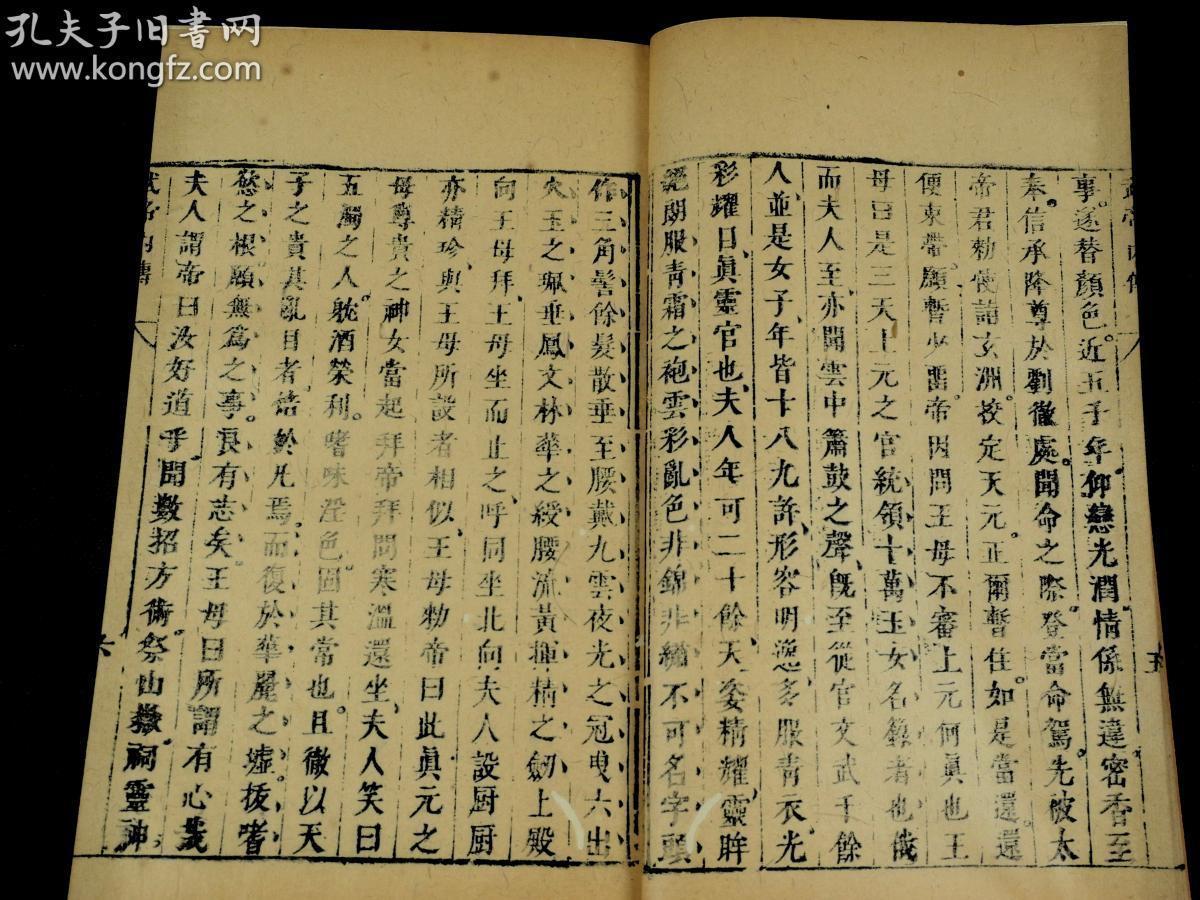 孔夫子旧书网
www.kongfz.com
武帝內傳
五
事遂替顏色近五千年仰戀光潤情係無違密香至
奉信承降尊於劉徹處聞命之際登當命駕先被太
帝君勑使詣玄洲校定天元正爾暫住如是當還還
便束帶願暫少畱帝因問王母不審上元何眞也王
母曰是三天上元之官統領十萬玉女名籙者也俄
而夫人至亦聞雲中簫鼓之聲旣至從官文武千餘
人並是女子年皆十八九許形容明逸多服靑衣光
彩耀日眞靈官也夫人年可二十餘天姿精耀靈眸
絕朗服靑霜之袍雲彩亂色非錦非繡不可名字頭
作三角髻餘髮散垂至腰戴九雲夜光之冠曳六出
火玉之珮垂鳳文林華之綬腰流黃揮精之劒上殿
向王母拜王母坐而止之呼同坐北向夫人設厨厨
亦精珍與王母所設者相似王母勑帝曰此眞元之
母尊貴之神女當起拜帝拜問寒溫還坐夫人笑曰
五濁之人躭酒榮利嗜味淫色固其常也且徹以天
子之貴其亂目者倍於凡焉而復於華麗之墟拔嗜
慾之根願無爲之事良有志矣王母曰所謂有心哉
夫人謂帝曰汝好道乎聞數招方術祭山嶽祠靈神
武帝內傳
六